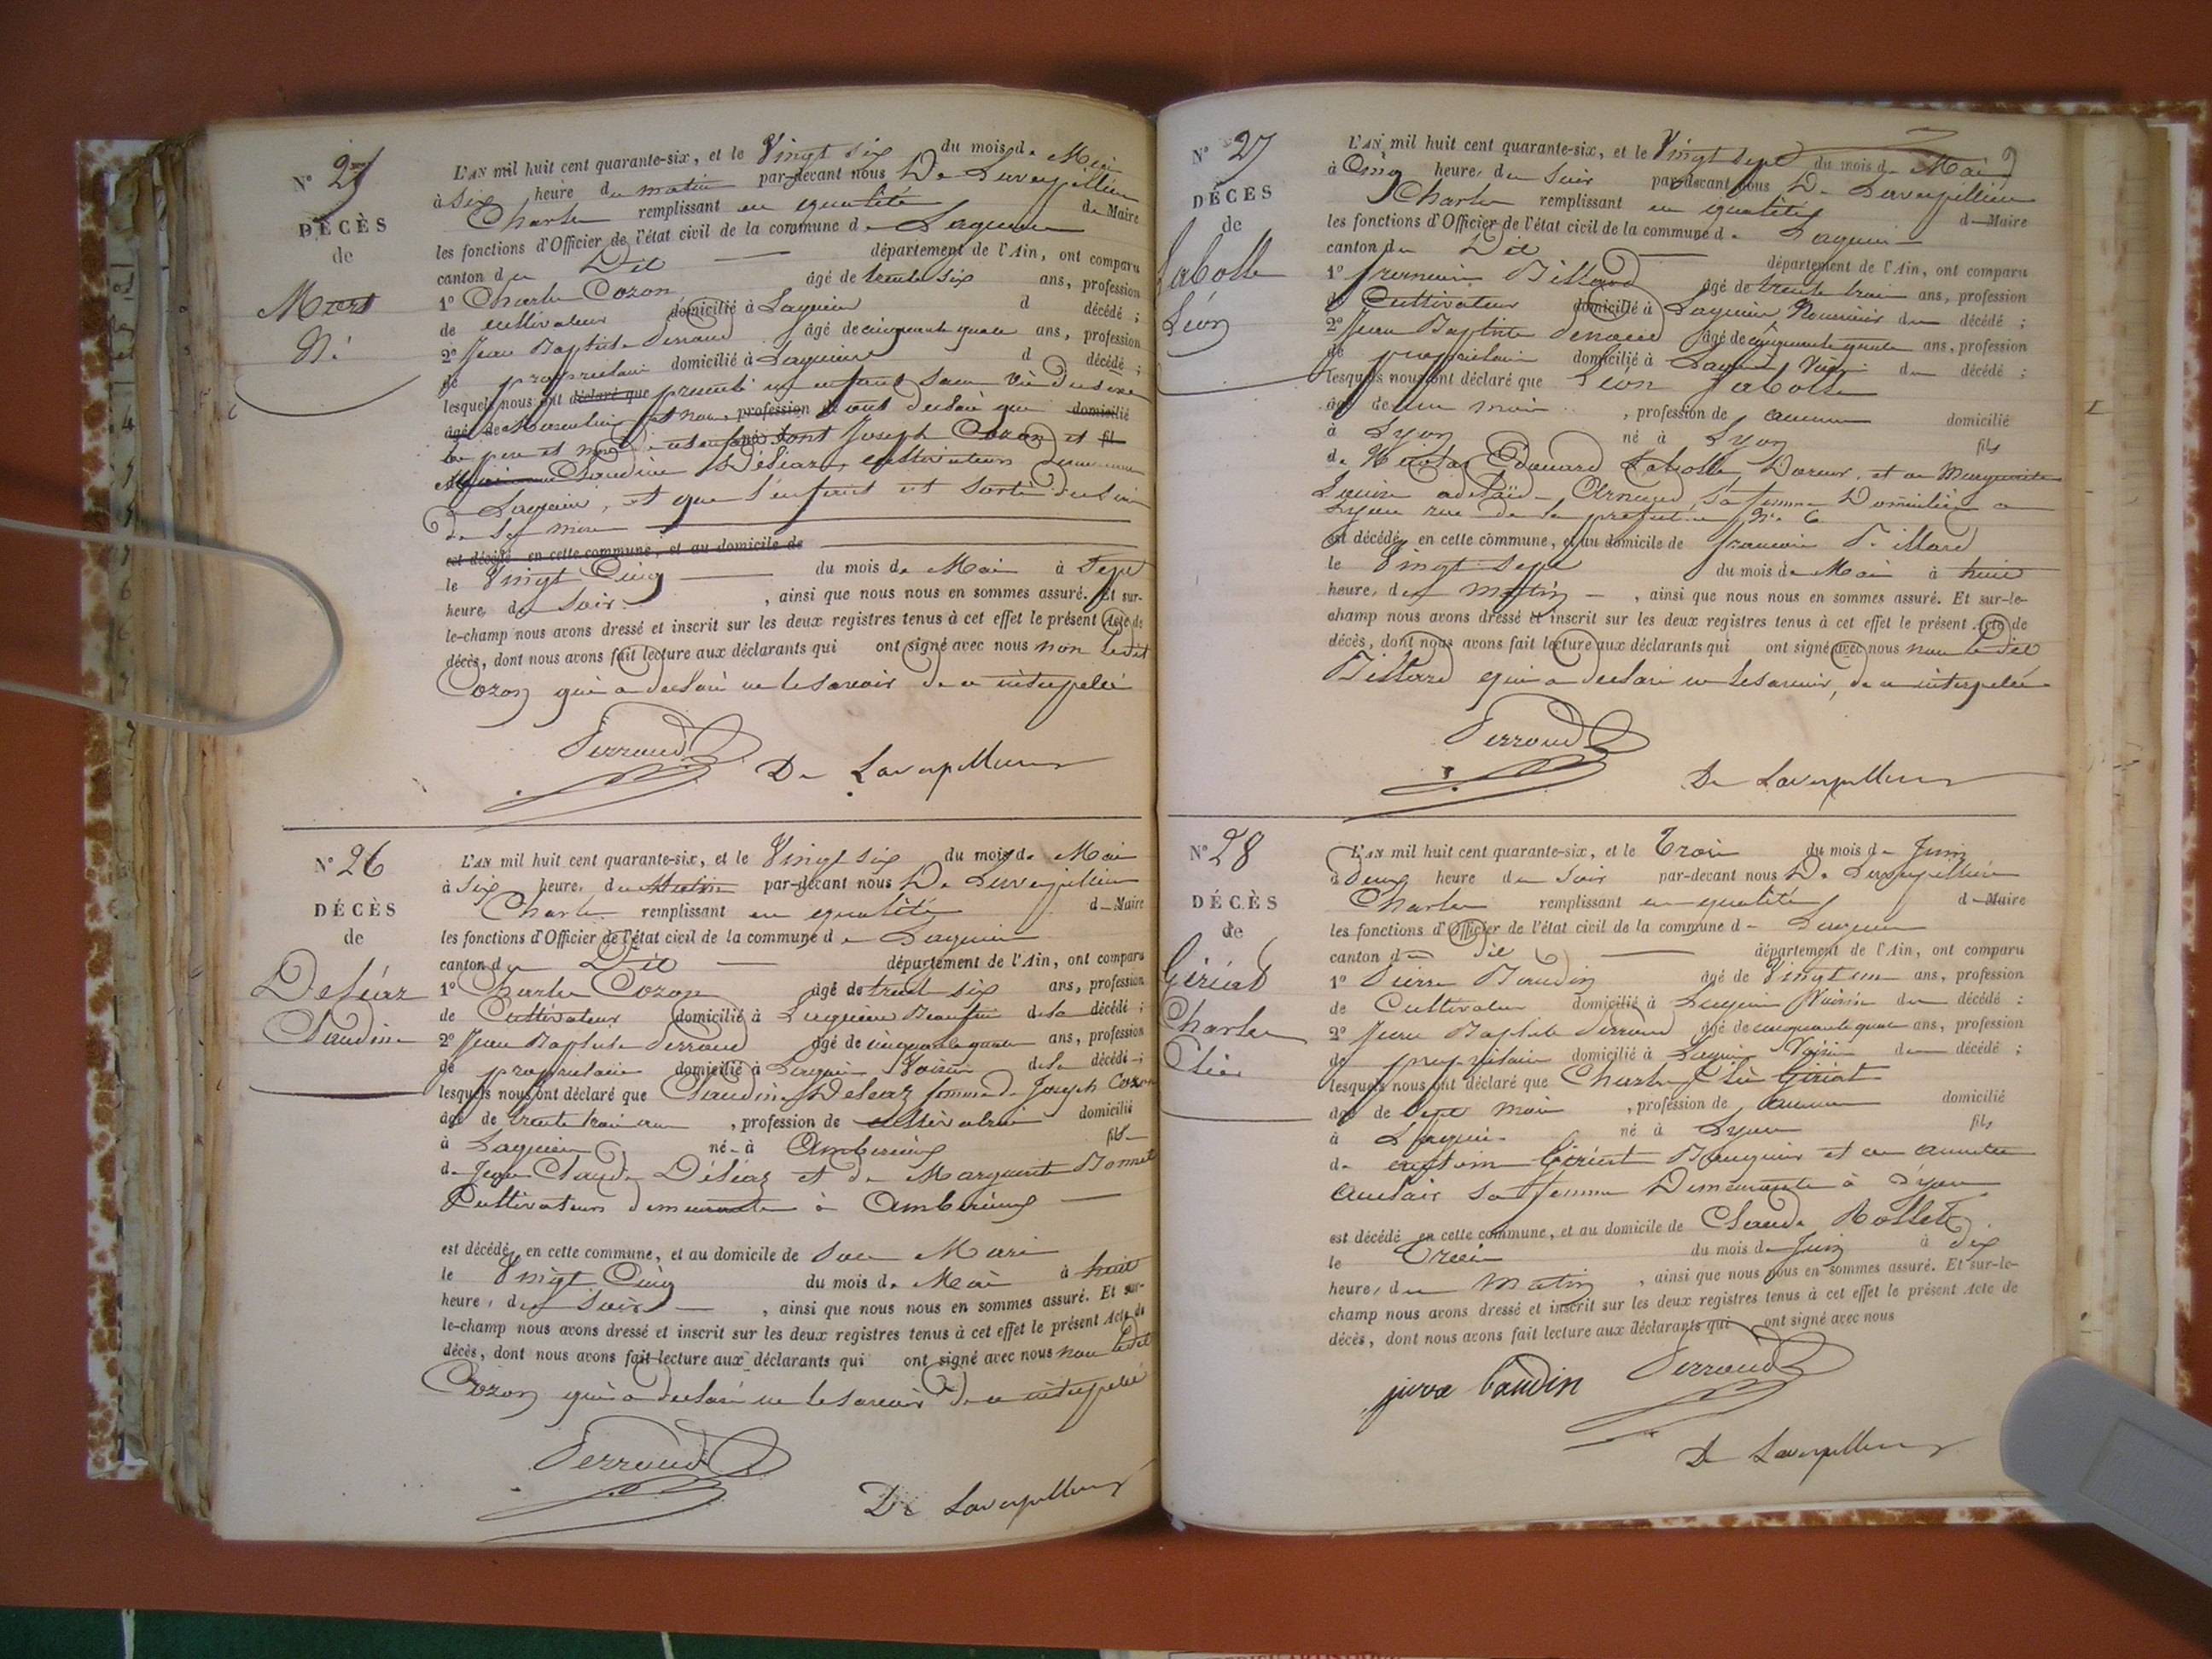 N° 25
DÉCÈS
de
Mort
Né
L'AN mil huit cent quarante-six, et le Vingt six du mois de Mai
à Six heure du matin par-devant nous De Laverpillière
Charles remplissant en qualité de Maire
les fonctions d'Officier de l'état civil de la commune de Lagnieu
canton du Dit département de l'Ain, ont comparu
1° Charles Cozon âgé de trente six ans, profession
de cultivateur domicilié à Lagnieu d décédé ;
2° Jean Baptiste Perroud âgé de cinquante quatre ans, profession
de propriétaire domicilié à Lagnieu d décédé ;
lesquels nous ont déclaré que présenté un enfant sans vie du sexe
âgé de Masculin et nous profession ont déclaré que domicilié
le père et mère né sont Joseph Cozon et fil
Claudine Déléaz, cultivateurs
Lagnieu, et que l'enfant est sorti du sein
de sa mère
est décédé en cette commune, et au domicile de
le Vingt Cinq du mois de Mai à Sept
heure, du Soir, ainsi que nous nous en sommes assuré. Et sur-
le-champ nous avons dressé et inscrit sur les deux registres tenus à cet effet le présent Acte de
décès, dont nous avons fait lecture aux déclarants qui ont signé avec nous non ledit
Cozon qui a déclaré ne le savoir de ce interpellé
Perroud
De Laverpillière
N° 26
DÉCÈS
de
Deléaz
Claudine
L'AN mil huit cent quarante-six, et le Vingt six du mois de Mai
à Six heure, du Matin par-devant nous De Laverpillière
Charles remplissant en qualité de Maire
les fonctions d'Officier de l'état civil de la commune de Lagnieu
canton du Dit département de l'Ain, ont comparu
1° Charles Cozon âgé de trente six ans, profession
de Cultivateur domicilié à Lagnieu Beaufrère de la décédé ;
2° Jean Baptiste Perroud âgé de cinquante quatre ans, profession
de propriétaire domicilié à Lagnieu Voisin de la décédé ;
lesquels nous ont déclaré que Claudine Deléaz femme de Joseph Cozon
âgé de trente trois ans, profession de cultivatrice domicilié
à Lagnieu né à Ambérieux fil
de Jean Claude Déléaz et de Marguerite Bonnet
Cultivateurs demeurante à Ambérieux
est décédé en cette commune, et au domicile de Son Mari
le Vingt Cinq du mois de Mai à huit
heure, du Soir, ainsi que nous nous en sommes assuré. Et sur-
le-champ nous avons dressé et inscrit sur les deux registres tenus à cet effet le présent Acte de
décès, dont nous avons fait lecture aux déclarants qui ont signé avec nous non ledit
Cozon qui a déclaré ne le savoir de ce interpellé
Perroud
De Laverpillière
N° 27
DÉCÈS
de
Labolle
Léon
L'AN mil huit cent quarante-six, et le Vingt Sept du mois de Mai
à Cinq heure, du Soir par-devant nous De Laverpillière
Charles remplissant en qualité de Maire
les fonctions d'Officier de l'état civil de la commune de Lagnieu
canton du Dit département de l'Ain, ont comparu
1° François Billard âgé de trente trois ans, profession
de Cultivateur domicilié à Lagnieu Nourricier du décédé ;
2° Jean Baptiste Perroud âgé de cinquante quatre ans, profession
de propriétaire domicilié à Lagnieu Voisin du décédé ;
lesquels nous ont déclaré que Léon Labolle
âgé de un mois, profession de aucune domicilié
à Lyon né à Lyon fils
de Nicolas Edouard Labolle Doreur, et de Marguerite
Louise adelaïde sa femme Domiciliés a
Lyon rue de la préfecture N° 6
est décédé, en cette commune, et au domicile de François Billard
le Vingt Sept du mois de Mai à huit
heure, du Matin, ainsi que nous nous en sommes assuré. Et sur-le-
champ nous avons dressé et inscrit sur les deux registres tenus à cet effet le présent Acte de
décès, dont nous avons fait lecture aux déclarants qui ont signé avec nous non ledit
Billard qui a déclaré ne le savoir, de ce interpellé
Perroud
De Laverpillière
N° 28
DÉCÈS
de
Gériat
Charles
Elie
L'AN mil huit cent quarante-six, et le Trois du mois de Juin
à Deux heure du Soir par-devant nous De Laverpillière
Charles remplissant en qualité de Maire
les fonctions d'Officier de l'état civil de la commune de Lagnieu
canton du Dit département de l'Ain, ont comparu
1° Pierre Baudin âgé de Vingt un ans, profession
de Cultivateur domicilié à Lagnieu Voisin du décédé ;
2° Jean Baptiste Perroud âgé de cinquante quatre ans, profession
de propriétaire domicilié à Lagnieu Voisin du décédé ;
lesquels nous ont déclaré que Charles Elie Gériat
âgé de Sept Mois, profession de aucune domicilié
à Lagnieu né à Lyon fils
de Gériat et de annette
Auclair sa femme Demeurante à Lyon
est décédé en cette commune, et au domicile de Claude Rollet
le Trois du mois de Juin à dix
heure, du Matin, ainsi que nous nous en sommes assuré. Et sur-le-
champ nous avons dressé et inscrit sur les deux registres tenus à cet effet le présent Acte de
décès, dont nous avons fait lecture aux déclarants qui ont signé avec nous
pierre baudin
Perroud
De Laverpillière